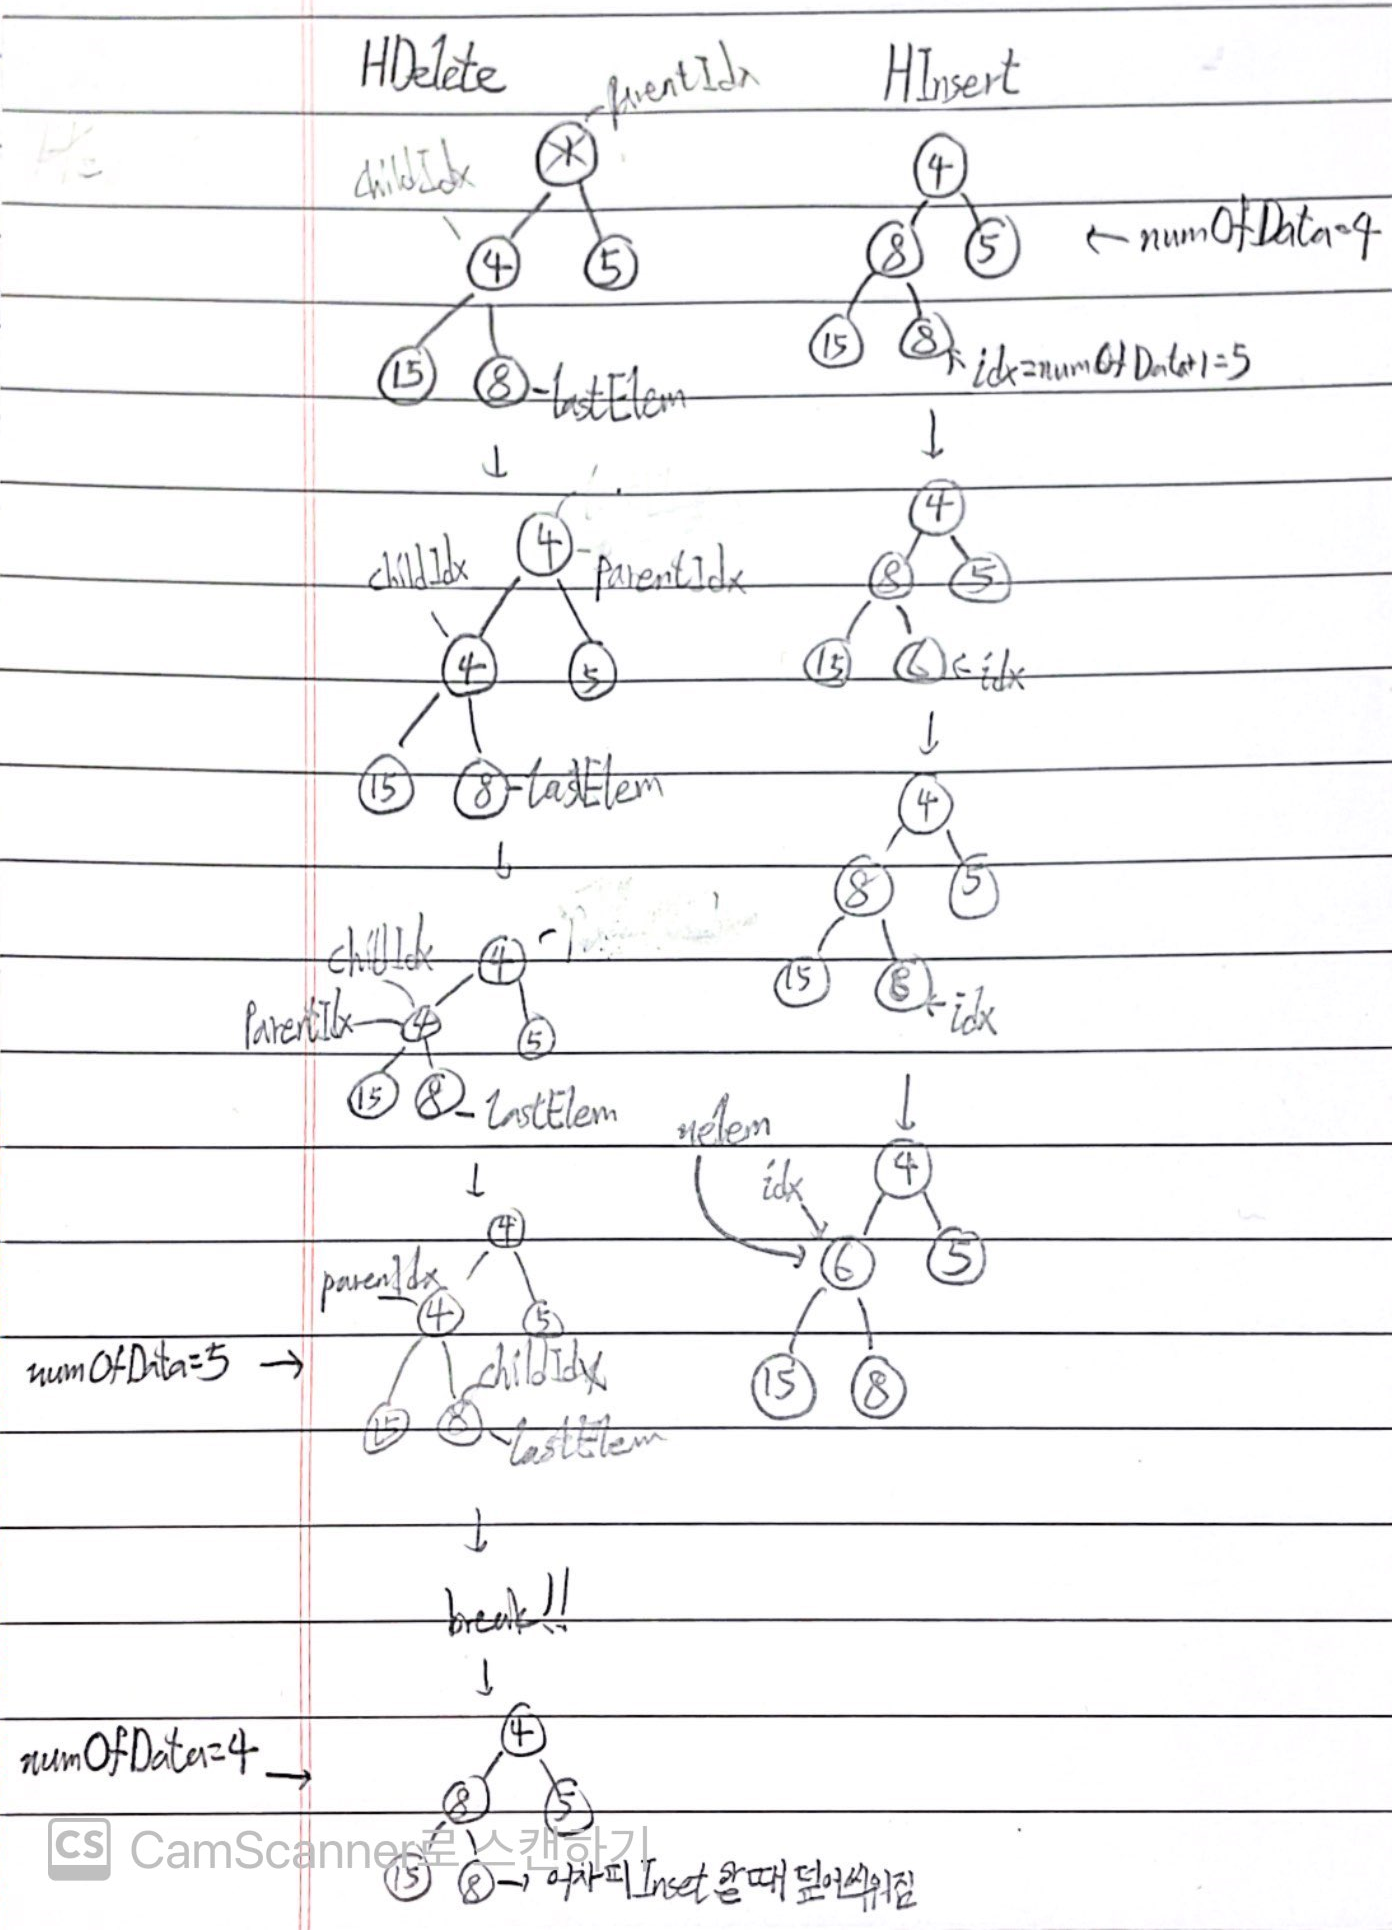 HDelete
parentIdx
childIdx
4
5
15
8
lastElem
↓
4
childIdx
parentIdx
4
5
15
8
lastElem
↓
childIdx
4
ParentIdx
4
5
15
8
lastElem
↓
4
parenIdx
4
5
numOfData=5 →
childIdx
15
8
lastElem
↓
break!!
↓
4
numOfData=4 →
8
5
15
8 → 어차피 Inset 할 때 덮어씌워짐
HInsert
4
8
5
← numOfData=4
15
8
idx=numOfData+1=5
↓
4
8
5
15
6
← idx
↓
4
8
5
15
8
← idx
↓
nelem
idx
4
6
5
15
8
CS CamScanner로 스캔하기